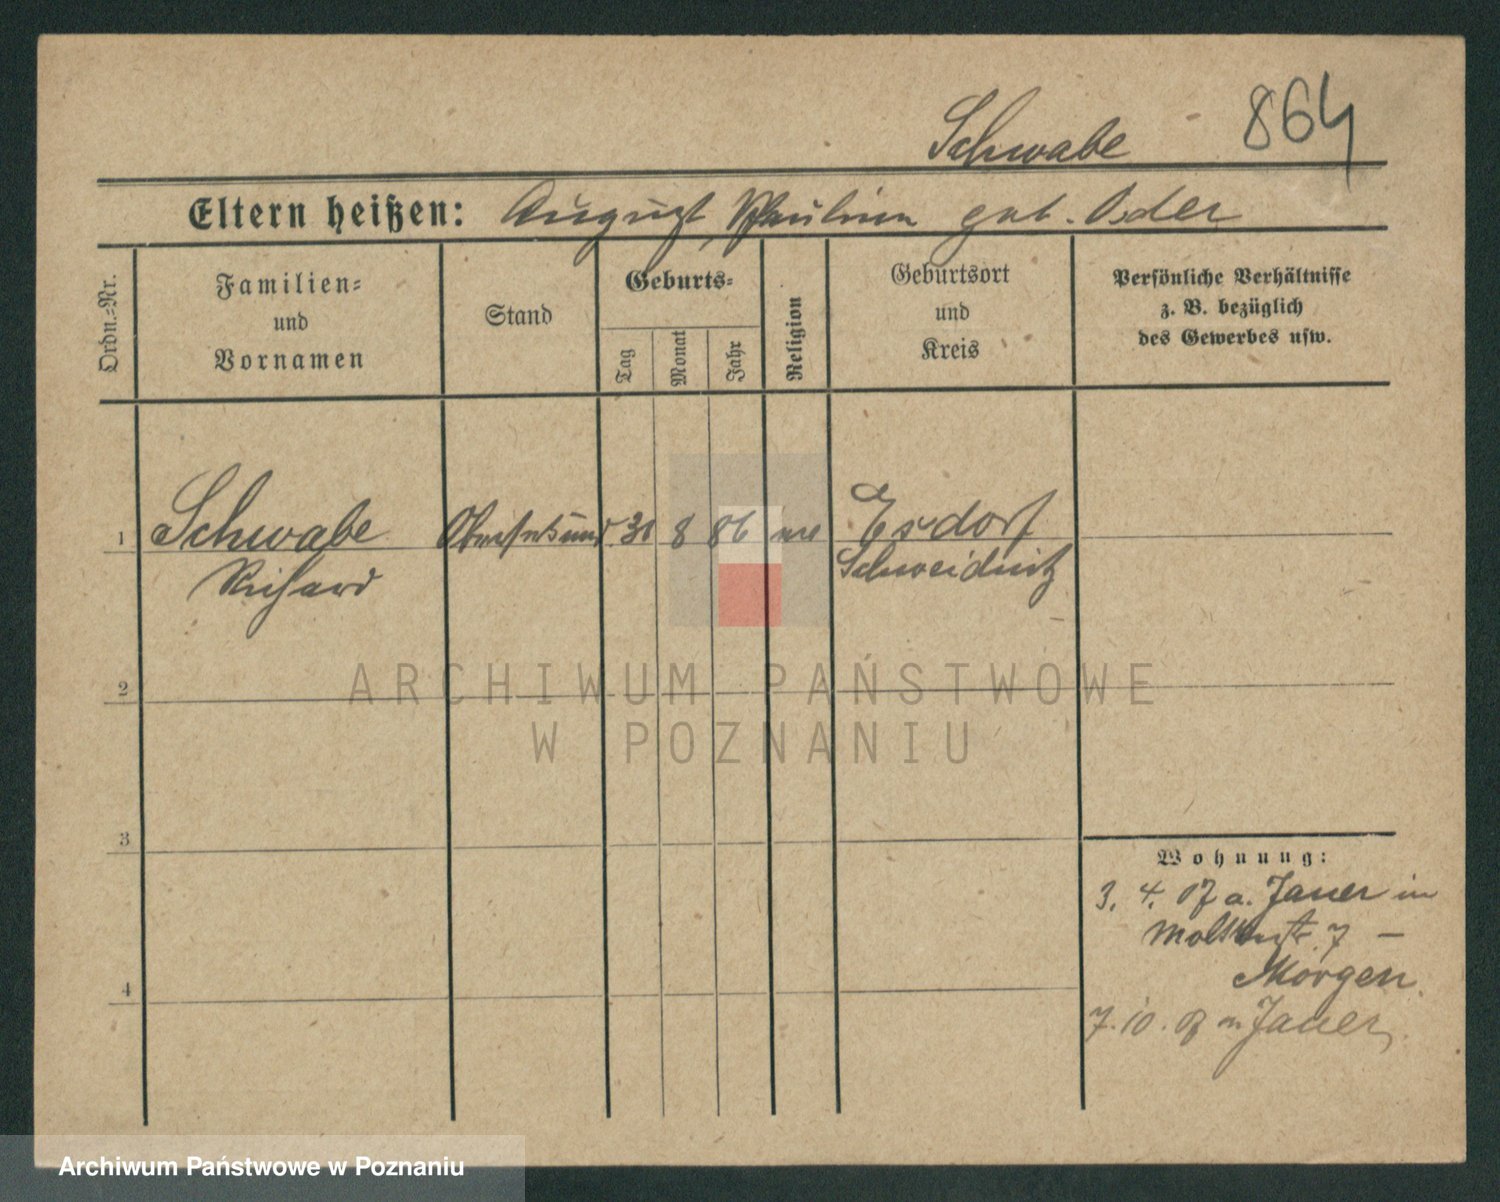 Schwabe 864
Eltern heißen: August, Pauline geb. Oder
Ordn.-Nr.
Familien-
und
Vornamen
Stand
Geburts-
Tag
Monat
Jahr
Religion
Geburtsort
und
Kreis
Persönliche Verhältnisse
z. B. bezüglich
des Gewerbes usw.
1 Schwabe 8 86 Esdorf
Richard Schweidnitz
ARCHIWUM PAŃSTWOWE
W POZNANIU
2
3
4
Wohnung:
3. 4. 07 a. Jauer in
7 –
Morgen
7. 10. 07 n. Jauer
Archiwum Państwowe w Poznaniu